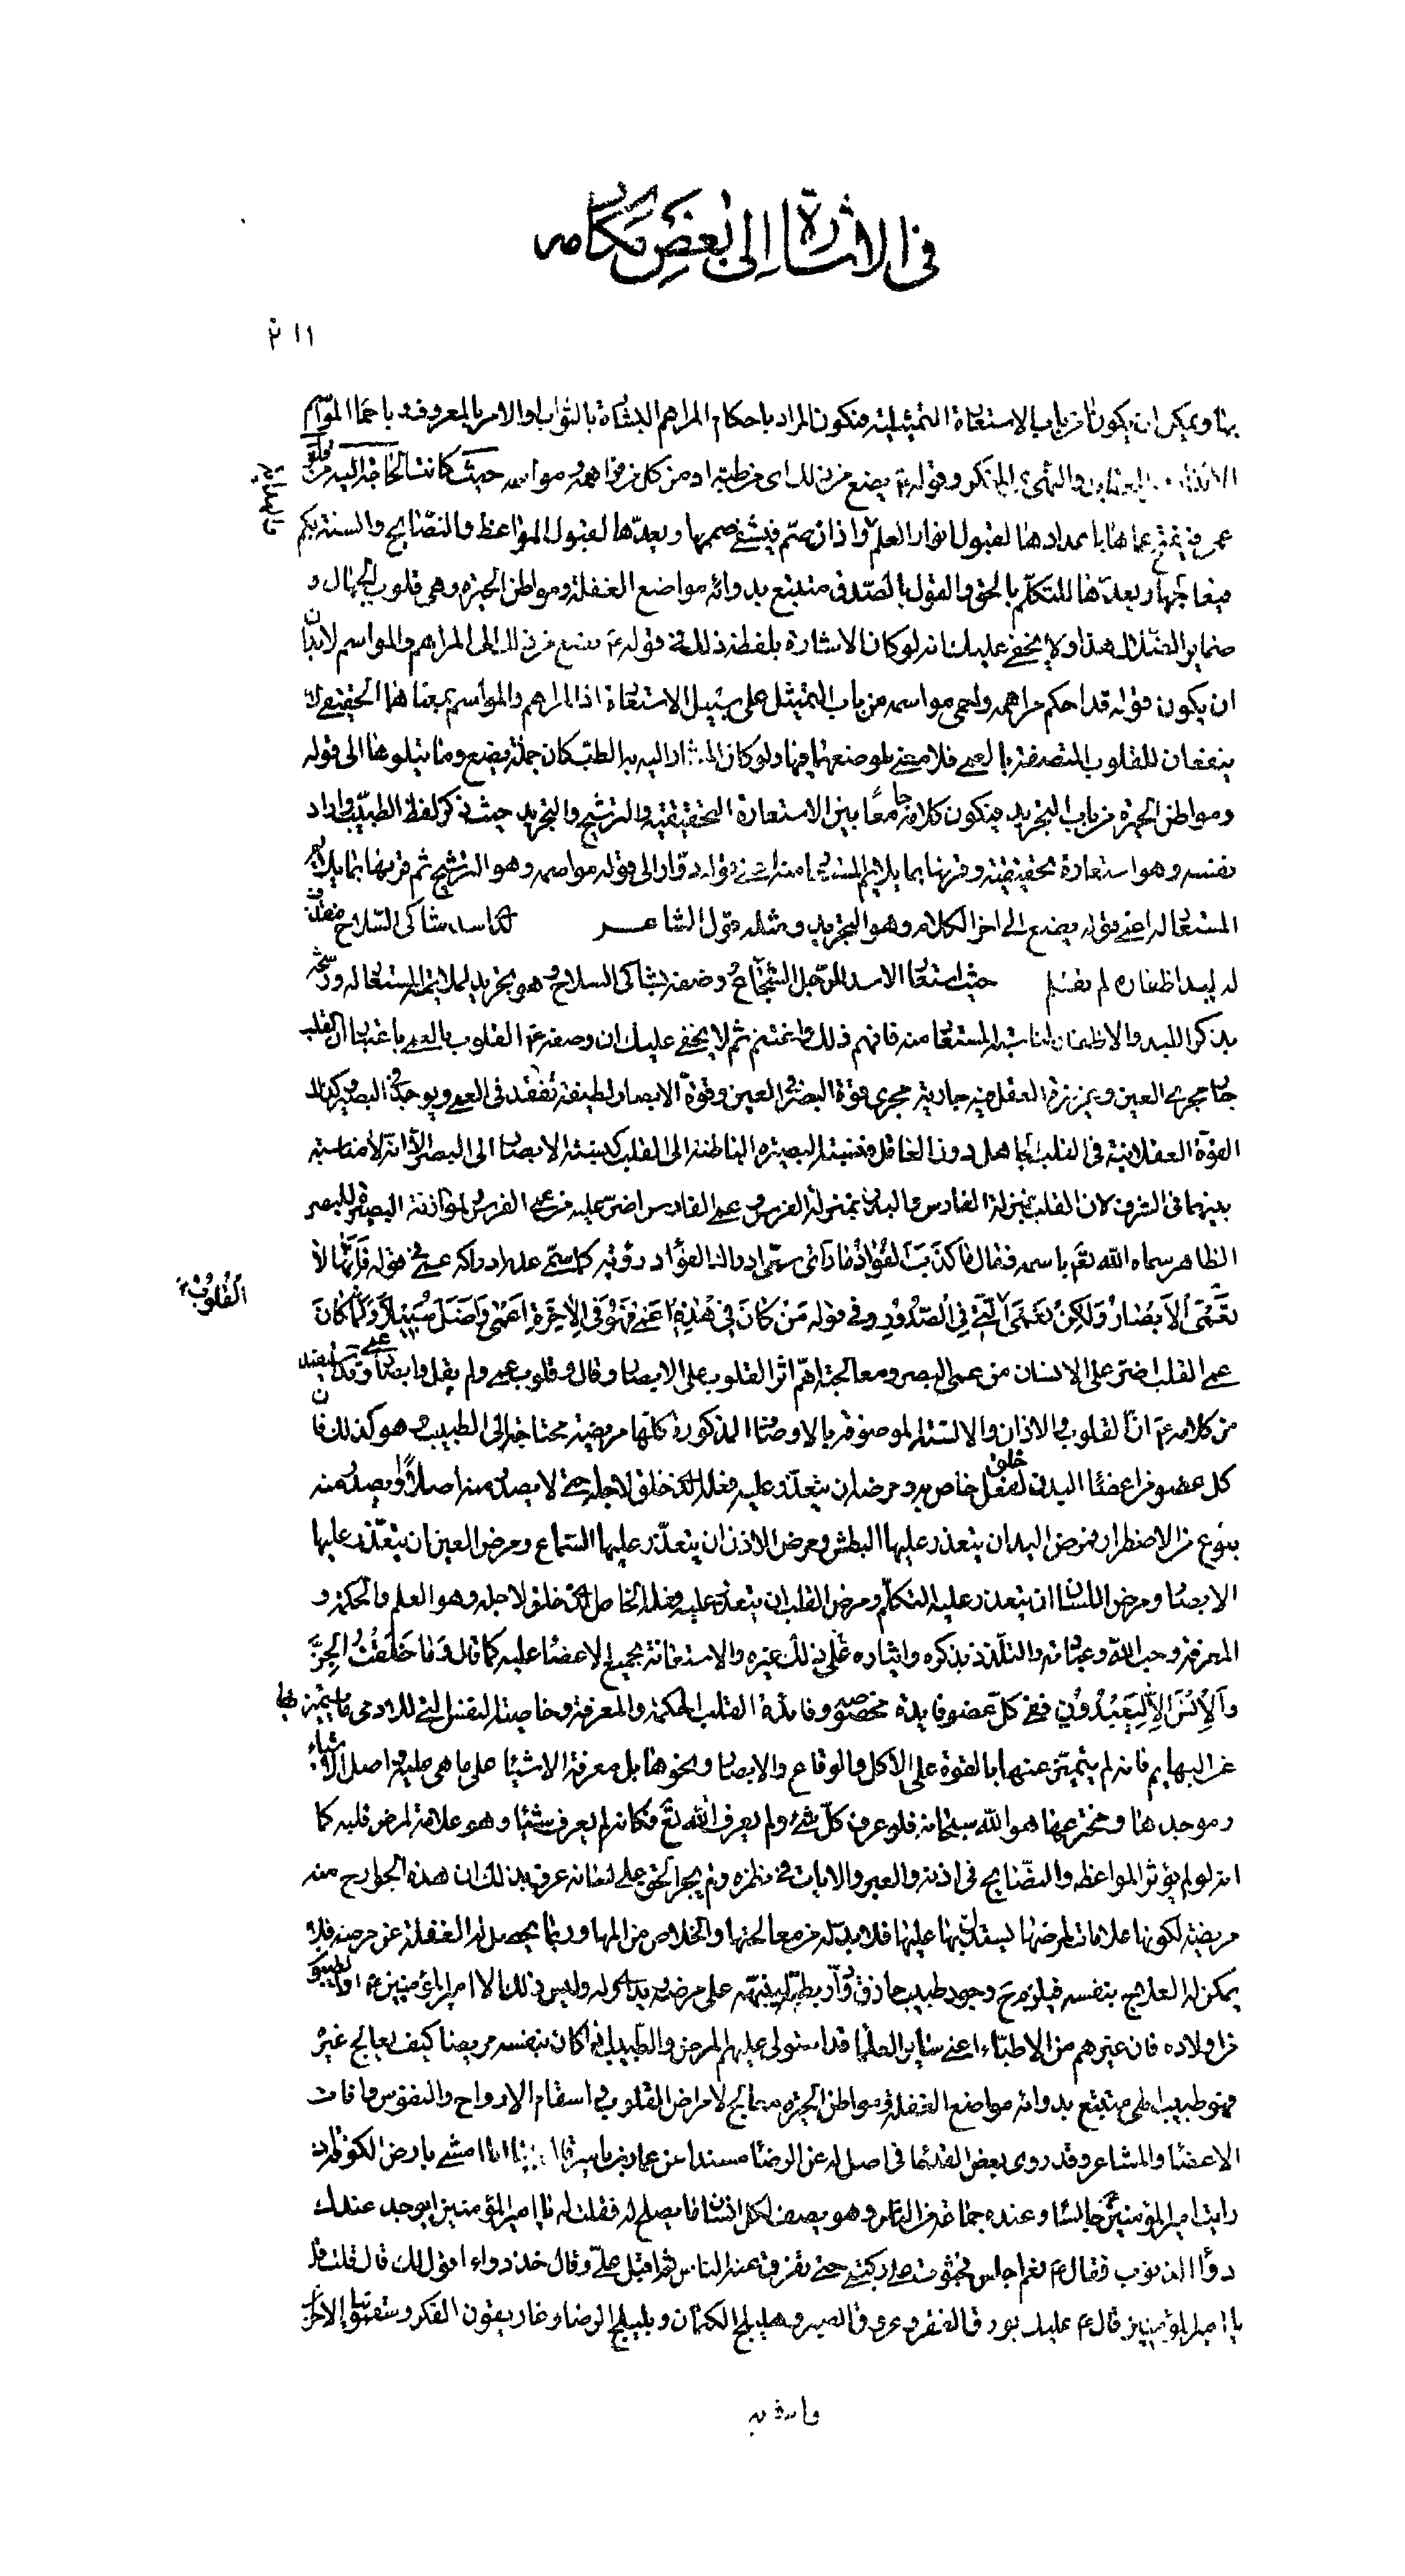 في الاشارة الى بعض مكارمه
٢١١
بها ويمكن ان يكون من باب الاستعارة التمثيلية فيكون المراد باحكام المراهم البشارة بالثواب والامر بالمعروف وباحماء المواسم
الانذار والنهى عن المنكر وقوله ع يضع من ذلك اى من طبه او من كل من مراهمه ومواسمه حيث كانت الحاجة اليه من قلوب
عمى فيفتح عماها باعدادها لقبول انوار العلم واذان صم فيشفى صممها ويعدها لقبول المواعظ والنصايح والسنة بكم
فيعالجها ويعدها للتكلم بالحق والقول بالصدق متتبع بدوائه مواضع الغفلة ومواطن الحيرة وهى قلوب الجهال و
ضماير الضلال هذا ولا يخفى عليك انه لو كان الاشارة بلفظة ذلك في قوله ع يضع من ذلك الى المراهم والمواسم لابد
ان يكون قوله قد احكم مراهمه واحمى مواسمه من باب التمثيل على سبيل الاستعارة اذ المراهم والمواسم بمعناهما الحقيقى لا
ينفعان للقلوب المتصفة بالعمى فلا معنى لموضعهما فيها ولو كان المشار اليه به الطب كان جملة يضع وما يتلوها الى قوله
ومواطن الحيرة من باب التجريد فيكون كلامه جامعا بين الاستعارة التحقيقية والترشيح والتجريد حيث ذكر لفظ الطبيب واراد
نفسه وهو استعارة تحقيقية وقرنها بما يلائم المستعار منه اعنى قوله دوار الى قوله مواسمه وهو الترشيح ثم قرنها بما يلائم
المستعار له اعنى قوله يضع الى اخر الكلام وهو التجريد ومثله قول الشاعر لدى اسد شاكى السلاح مقذف
له لبد اظفاره لم تقلم حيث استعار الاسد للرجل الشجاع ووصفه بشاكى السلاح وهو تجريد لملائمة المستعار له ورشحه
بذكر اللبد والاظفار لمناسبة المستعار منه فافهم ذلك واغتنم ثم لا يخفى عليك ان وصفه ع القلوب بالعمى باعتبار ان القلب
جار مجرى العين وغريزة العقل فيه جارية مجرى قوة البصر في العين وقوة الابصار لطيفة تفقد في العمى ويوجد في البصير كذلك
القوة العقلانية في القلب الجاهل دون العاقل فنسبة البصيرة الباطنة الى القلب كنسبة الابصار الى البصر الا انه لا مناسبة
بينهما في الشرف لان القلب بمنزلة الفارس والبدن بمنزلة الفرس وعمى الفارس اضر عليه من عمى الفرس ولموازنة البصيرة للبصر
الظاهر سماه الله تعم باسمه فقال ما كذب الفؤاد ما رأى سمى ادراك الفؤاد رؤية كما سمى عدم ادراكه عمى في قوله فانها لا
تعمى الابصار ولكن تعمى القلوب التي في الصدور وفى قوله من كان في هذه اعمى فهو في الاخرة اعمى واضل سبيلا ولما كان
عمى القلب اضر على الانسان من عمى البصر ومعالجته اهم اثر القلوب على الابصار وقال وقلوب عمى ولم يقل وابصار عمى وقد استفيد
من كلامه ع ان القلوب والاذان والالسنة الموصوفة بالاوصاف المذكورة كلها مريضة محتاجة الى الطبيب وهو كذلك فان
كل عضو من اعضاء البدن خلق لفعل خاص به ومرضه ان يتعذر عليه فعله الذى خلق لاجله حتى لا يصدر منه اصلا او يصدر منه
بنوع من الاضطراب فمرض اليد ان يتعذر عليها البطش ومرض الاذن ان يتعذر عليها السماع ومرض العين ان يتعذر عليها
الابصار ومرض اللسان ان يتعذر عليه التكلم ومرض القلب ان يتعذر عليه فعله الخاص الذى خلق لاجله وهو العلم والحكمة و
المعرفة وحب الله وعبادته والتلذذ بذكره وايثاره على ذلك غيره والاستعانة بجميع الاعضاء عليه كما قال وما خلقت الجن
والانس الا ليعبدون ففى كل عضو فايدة مخصوصة وفائدة القلب الحكمة والمعرفة وخاصية النفس التى للادمى ما يتميز بها
عن البهايم فانه لم يتميز عنها بالقوة على الاكل والوقاع والابصار ونحوها بل معرفة الاشياء على ما هى عليه واصل الاشياء
وموجدها ومخترعها هو الله سبحانه فلو عرف كل شئ ولم يعرف الله تع فكانه لم يعرف شيئا وهو علامة لمرض قلبه كما
انه لو لم يؤثر المواعظ والنصايح في اذنه والعبر والايات في منظره ولم يجر الحق على لسانه عرف بذلك ان هذه الجوارح منه
مريضة لكونها علامات لمرضها ليستدل بها عليها فلابد له من معالجتها والخلاص من المها وربما يحصل له الغفلة عن مرضه فلا
يمكن له العلاج بنفسه فيلزم ح وجود طبيب حاذق دوار بطبه لينبهه على مرضه ويداويه وليس ذلك الا امير المؤمنين ع والطيبون
من اولاده فان غيرهم من الاطباء اعنى ساير العلماء قد استولى عليهم المرض والطبيب اذا كان بنفسه مريضا كيف يعالج غيره
فهو طبيب الهى متتبع بدوائه مواضع الغفلة ومواطن الحيرة معالج لامراض القلوب واسقام الارواح والنفوس وافات
الاعضاء والمشاعر وقد روى بعض القدماء في اصل له عن الرضا مسندا عن عمار بن ياسر قال بينا انا امشى بارض الكوفة اذ
رايت امير المؤمنين ع جالسا وعنده جماعة من الناس وهو يصف لكل انسان ما يصلح له فقلت له يا امير المؤمنين ايوجد عندك
دواء الذنوب فقال ع نعم اجلس فجثوت على ركبتى حتى تفرق عنه الناس ثم اقبل على وقال خذ دواء اقول لك قال قلت قل
يا امير المؤمنين قال ع عليك بورق الفقر وعروق الصبر وهليلج الكتمان وبليلج الرضا وغاريقون الفكر وسقمونيا الاحزان